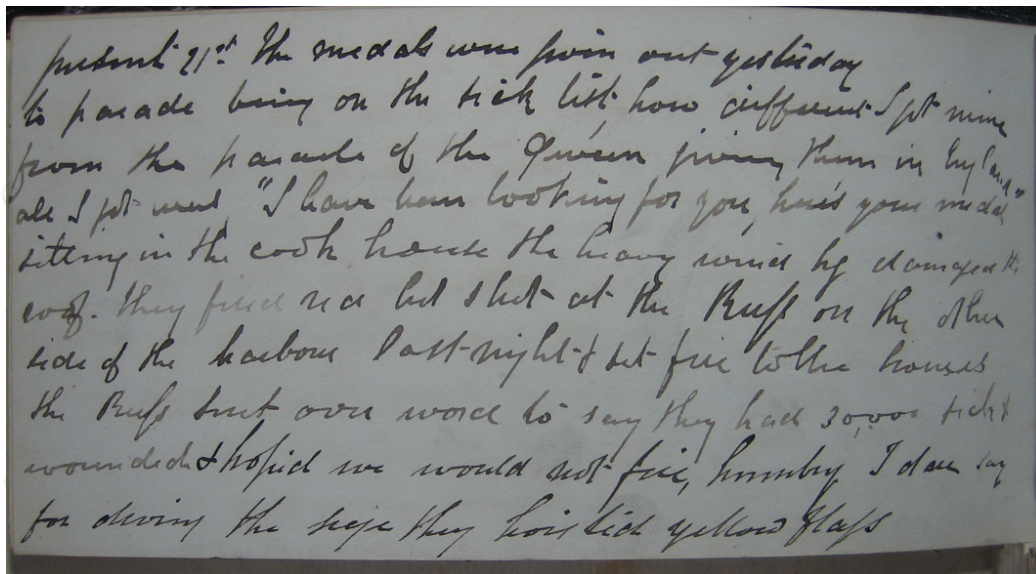 present 21st The medals were given out yesterday
to parade being on the sick list, how different I got mine
from the parade of the Queen giving them in England
all I got was, "I have been looking for you, here's your medal"
sitting in the cook house the heavy wind hg damaged the
roof. they fired red hot shot at the Russ on the other
side of the harbour last night & set fire to the houses
the Russ sent over word to say they had 30,000 sick &
wounded & hoped we would not fire, humbug I dare say
for during the siege they hoisted yellow flags